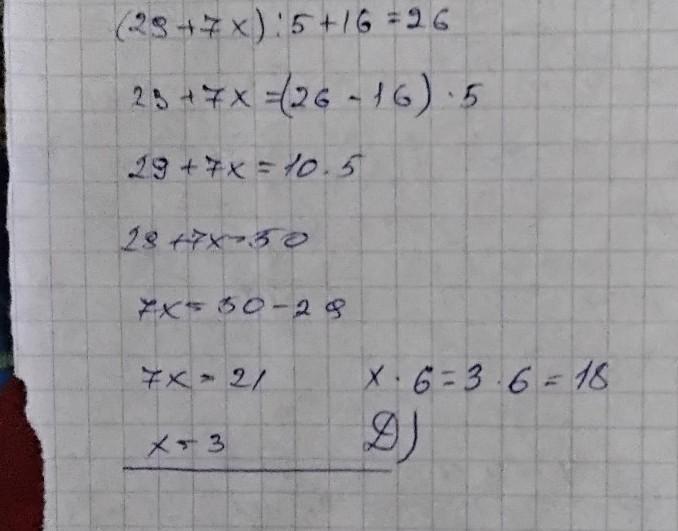 (29+7x):5+16=26
29+7x=(26-16)·5
29+7x=10·5
29+7x=50
7x=50-29
7x=21 x·6=3·6=18
x=3 D)